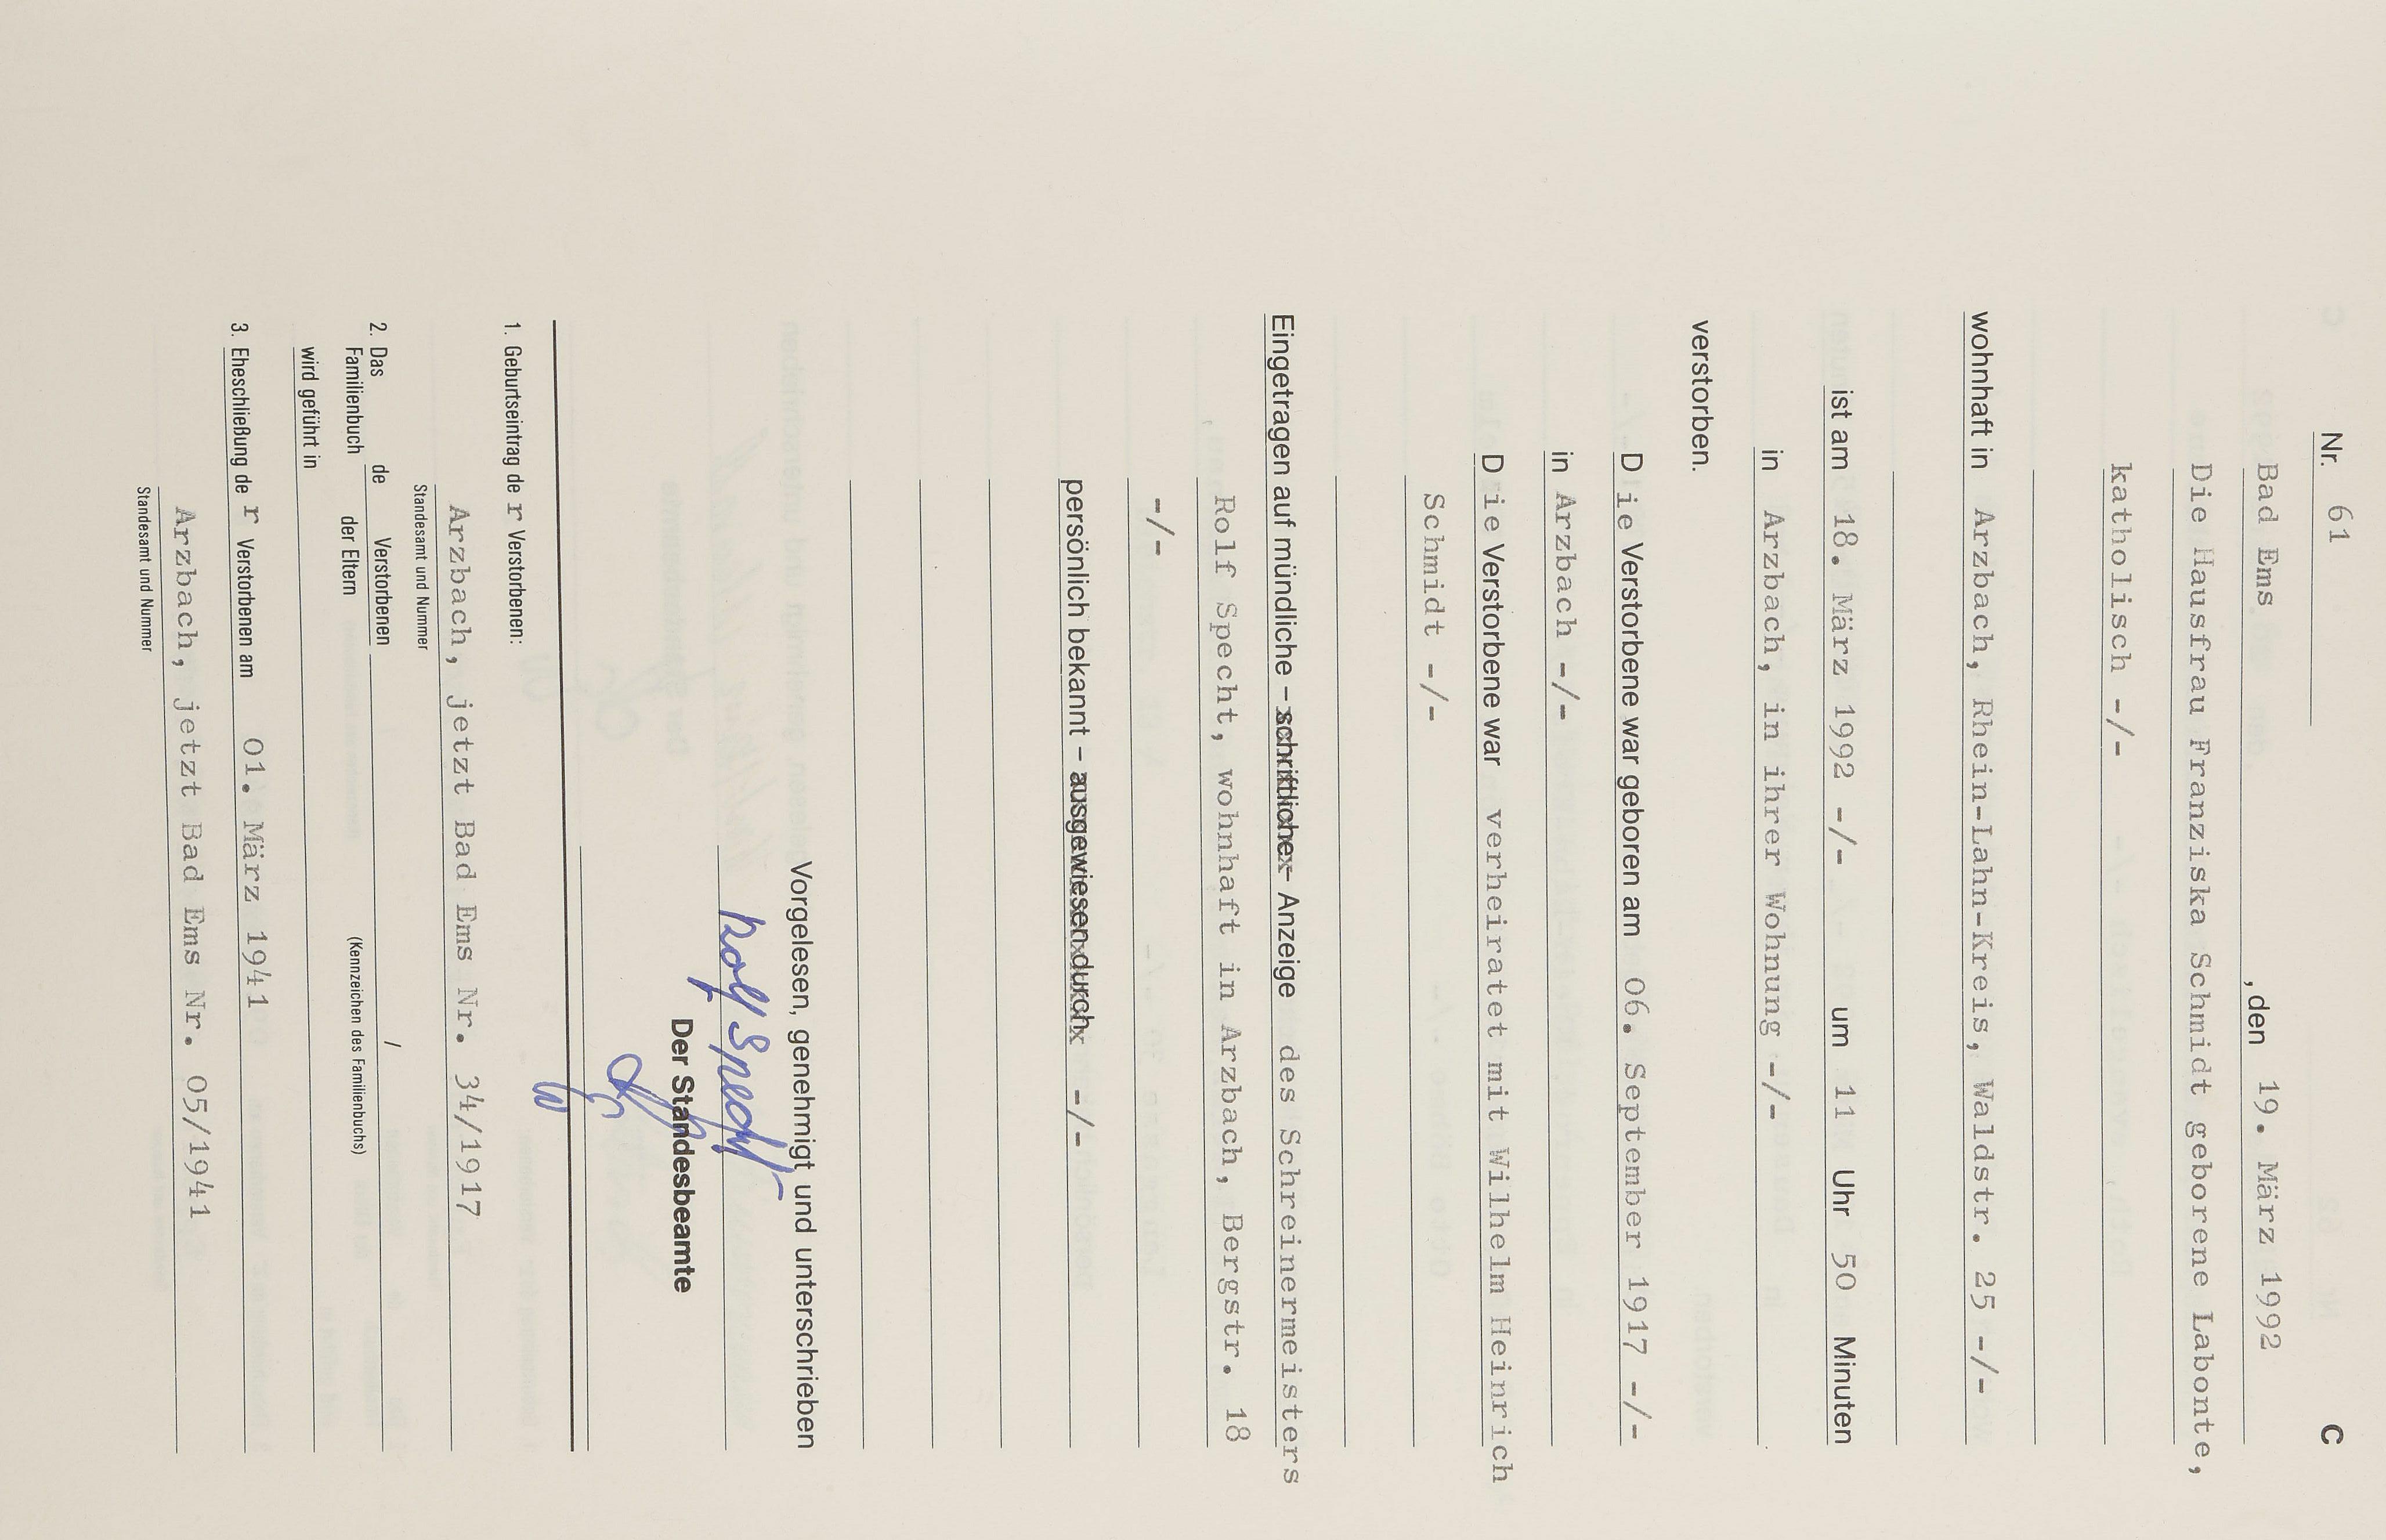 Nr. 61 C
Bad Ems , den 19. März 1992
Die Hausfrau Franziska Schmidt geborene Labonte,
katholisch -/-
wohnhaft in Arzbach, Rhein-Lahn-Kreis, Waldstr. 25 -/-
ist am 18. März 1992 -/- um 11 Uhr 50 Minuten
in Arzbach, in ihrer Wohnung -/-
verstorben.
Die Verstorbene war geboren am 06. September 1917 -/-
in Arzbach -/-
Die Verstorbene war verheiratet mit Wilhelm Heinrich
Schmidt -/-
Eingetragen auf mündliche – schriftliche – Anzeige des Schreinermeisters
Rolf Specht, wohnhaft in Arzbach, Bergstr. 18
-/-
persönlich bekannt – ausgewiesen durch -/-
Vorgelesen, genehmigt und unterschrieben
Rolf Specht
Der Standesbeamte
1. Geburtseintrag der Verstorbenen:
Arzbach, jetzt Bad Ems Nr. 34/1917
Standesamt und Nummer
2. Das Familienbuch de Verstorbenen / der Eltern
(Kennzeichen des Familienbuchs)
wird geführt in
3. Eheschließung der Verstorbenen am 01. März 1941
Arzbach, jetzt Bad Ems Nr. 05/1941
Standesamt und Nummer